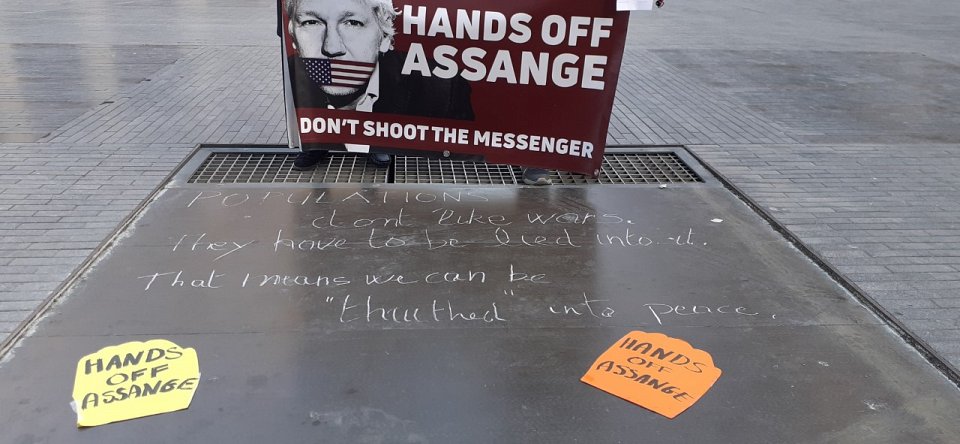 HANDS OFF
ASSANGE
DON'T SHOOT THE MESSENGER
POPULATIONS
dont like wars.
They have to be lied into it.
That means we can be
"thruthed" into peace.
HANDS
OFF
ASSANGE
HANDS
OFF
ASSANGE